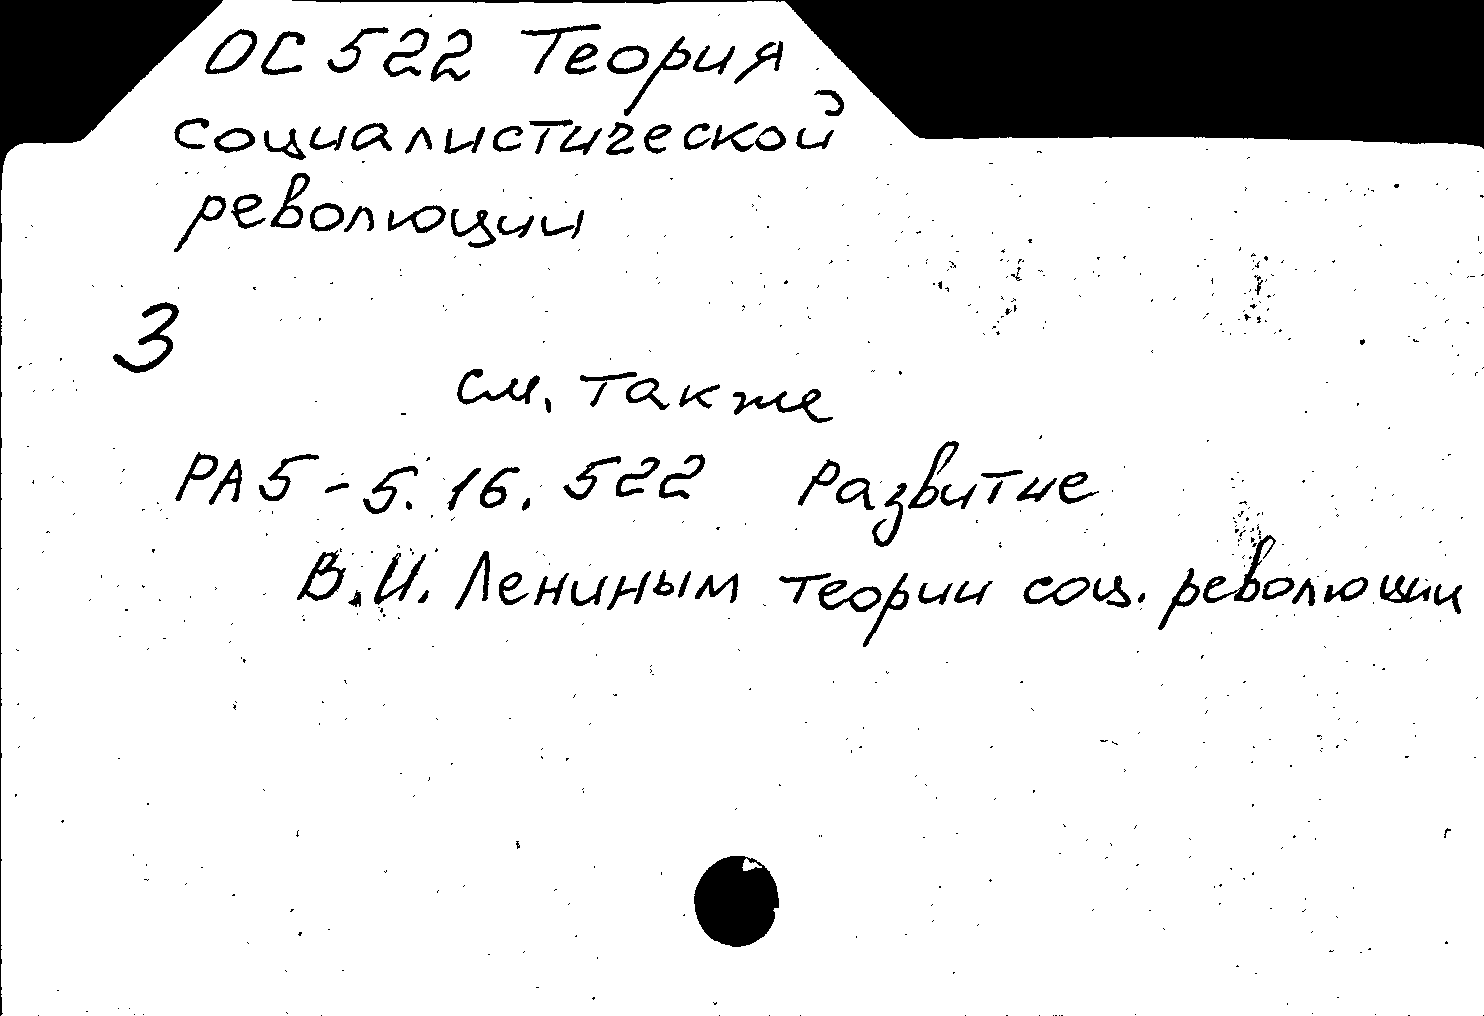 ОС 522 Теория
социалистической
революции
3
см. также
РА5-5.16.522 Развитие
В.И. Лениным теории соц. революции